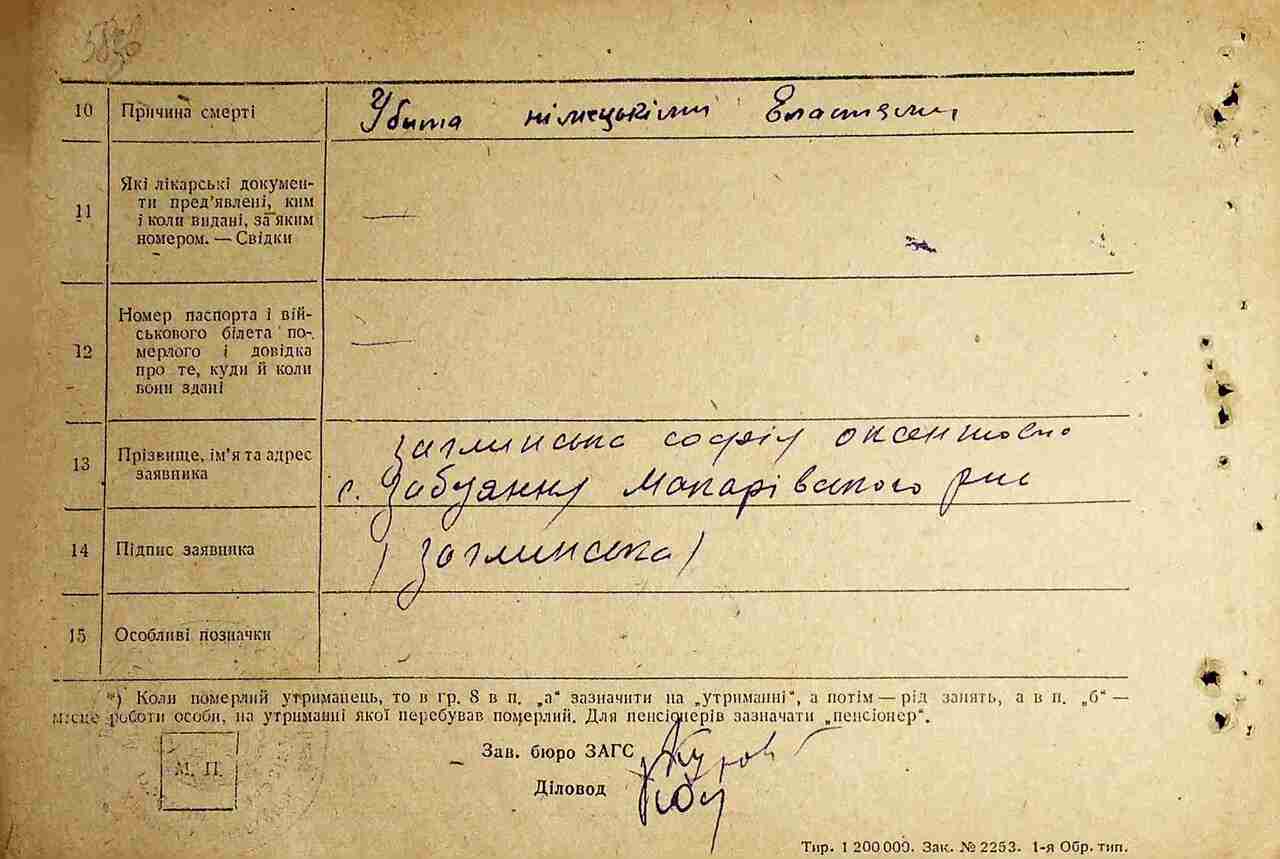 10 Причина смерті Убита німецькіми Властями
11 Які лікарські докумен-
ти пред'явлені, ким
і коли видані, за яким
номером. — Свідки —
12 Номер паспорта і вій-
ськового білета по-
мерлого і довідка
про те, куди й коли
вони здані —
заглинська софія
13 Прізвище, ім'я та адрес
заявника
с. Забуяння Макарівського р-на
14 Підпис заявника (Заглинська)
15 Особливі позначки
*) Коли померлий утриманець, то в гр. 8 в п. „а“ зазначити на „утриманні“, а потім — рід занять, а в п. „б“ —
місце роботи особи, на утриманні якої перебував померлий. Для пенсіонерів зазначати „пенсіонер“.
Зав. бюро ЗАГС
М. П.
Діловод
Тир. 1 200 000. Зак. № 2253. 1-я Обр. тип.